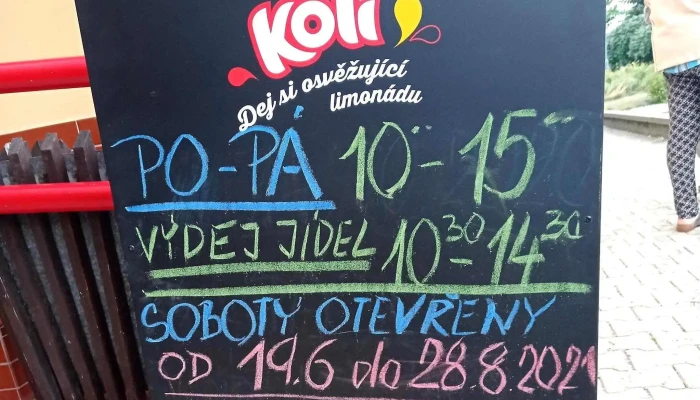 Koli
Dej si osvěžující
limonádu
PO-PÁ 10°°-15°°
VÝDEJ JÍDEL 10³⁰-14³⁰
SOBOTY OTEVŘENY
OD 19.6 do 28.8 2021